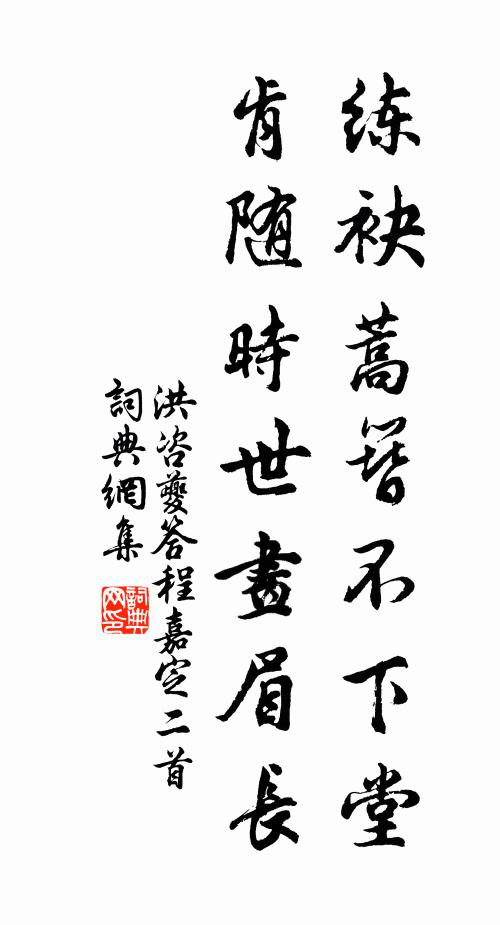 练袂蒿簪不下堂
肯随時世畫眉長
洪咨夔答程嘉定二首
詞典網集
詞典网印